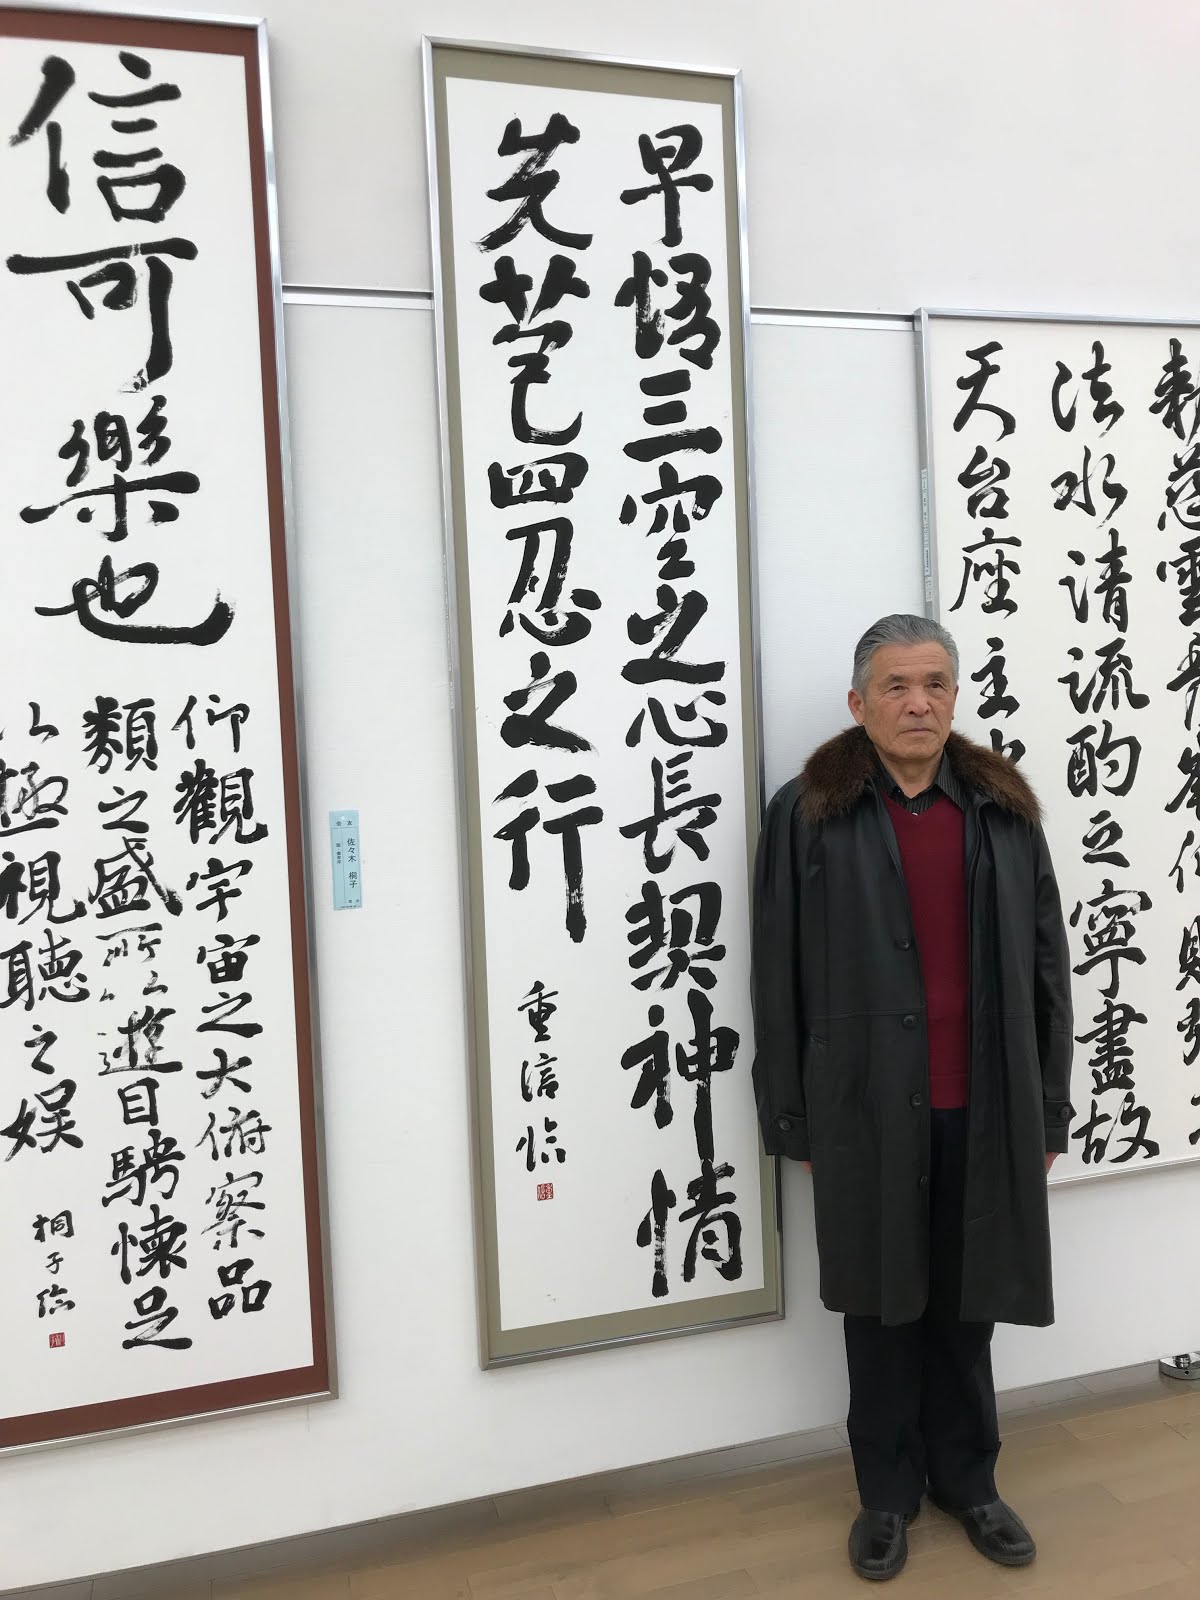 信可樂也
仰觀宇宙之大俯察品
類之盛所以遊目騁懷足
以極視聽之娯
桐子臨
会友
佐々木 桐子
早悟三空之心長契神情
先苞四忍之行
重信臨
慈雲
法水清流酌之寧盡故
天台座主